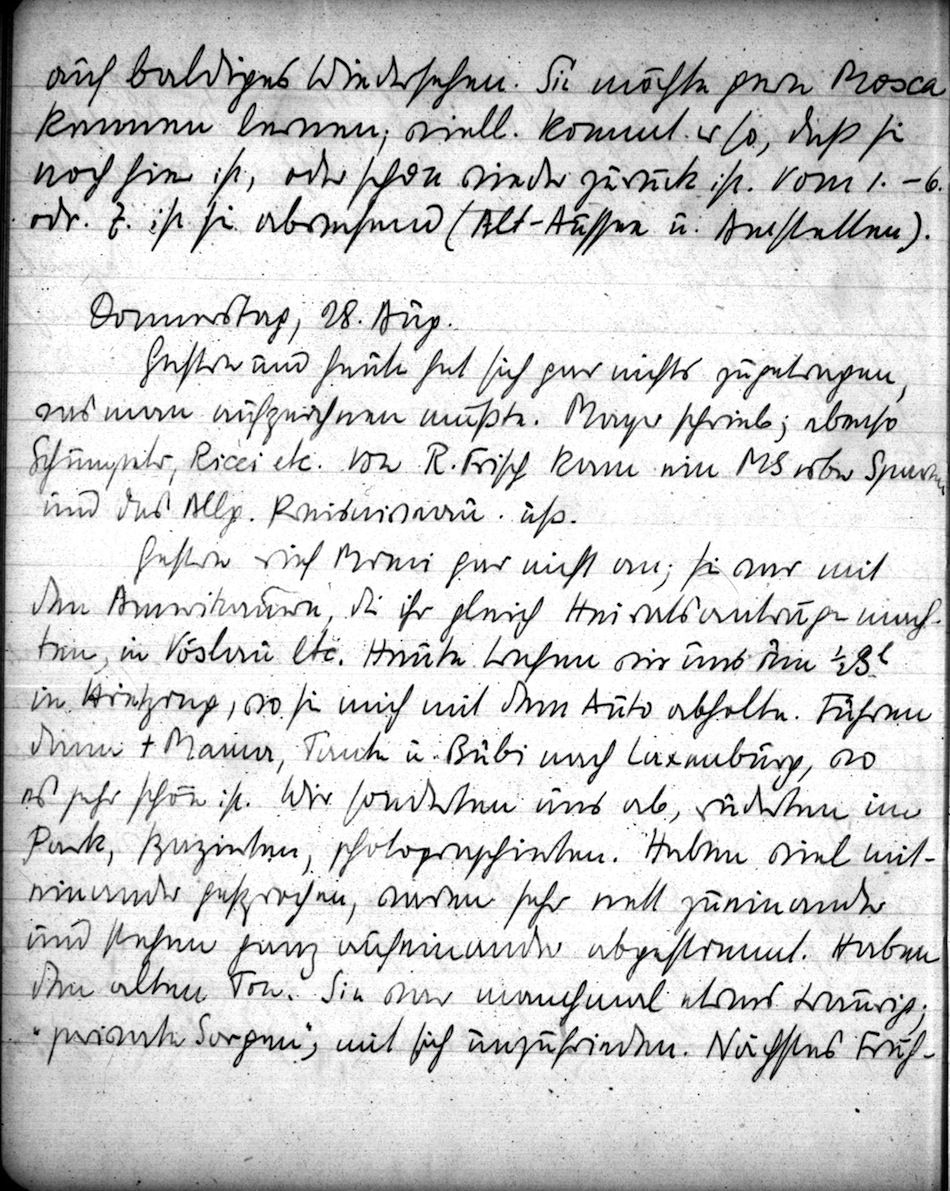 auf baldiges Wiedersehen. Sie möchte gern Mosca
kennen lernen; viell. kommt er so, daß sie
noch hier ist, oder schon wieder zurück ist. Vom 1. – 6.
odr. 7. ist sie abwesend (Alt-Aussee u. Amstetten).
Donnerstag, 28. Aug.
Gestern und heute hat sich gar nichts zugetragen,
was man aufzeichnen müßte. Mayer schrieb; ebenso
Schumpeter, Ricci etc. Von R. Frisch kam ein MS über Sparen
und das Allg. Preisniveau. usf.
Gestern rief Mimi gar nicht an; sie war mit
den Amerikanern, die ihr gleich Heiratsanträge mach-
ten, in Vöslau etc. Heute trafen wir uns um ½3h
in Hietzing, wo sie mich mit dem Auto abholte. Fuhren
dann + Mama, Tante u. Bubi nach Laxenburg, wo
es sehr schön ist. Wir sonderten uns ab, ruderten im
Park, spazierten, photographierten. Haben viel mit-
einander gesprochen, waren sehr nett zueinander
und stehen ganz aufeinander abgestimmt. Haben
den alten Ton. Sie war manchmal etwas traurig;
"private Sorgen"; mit sich unzufrieden. Nächstes Früh-